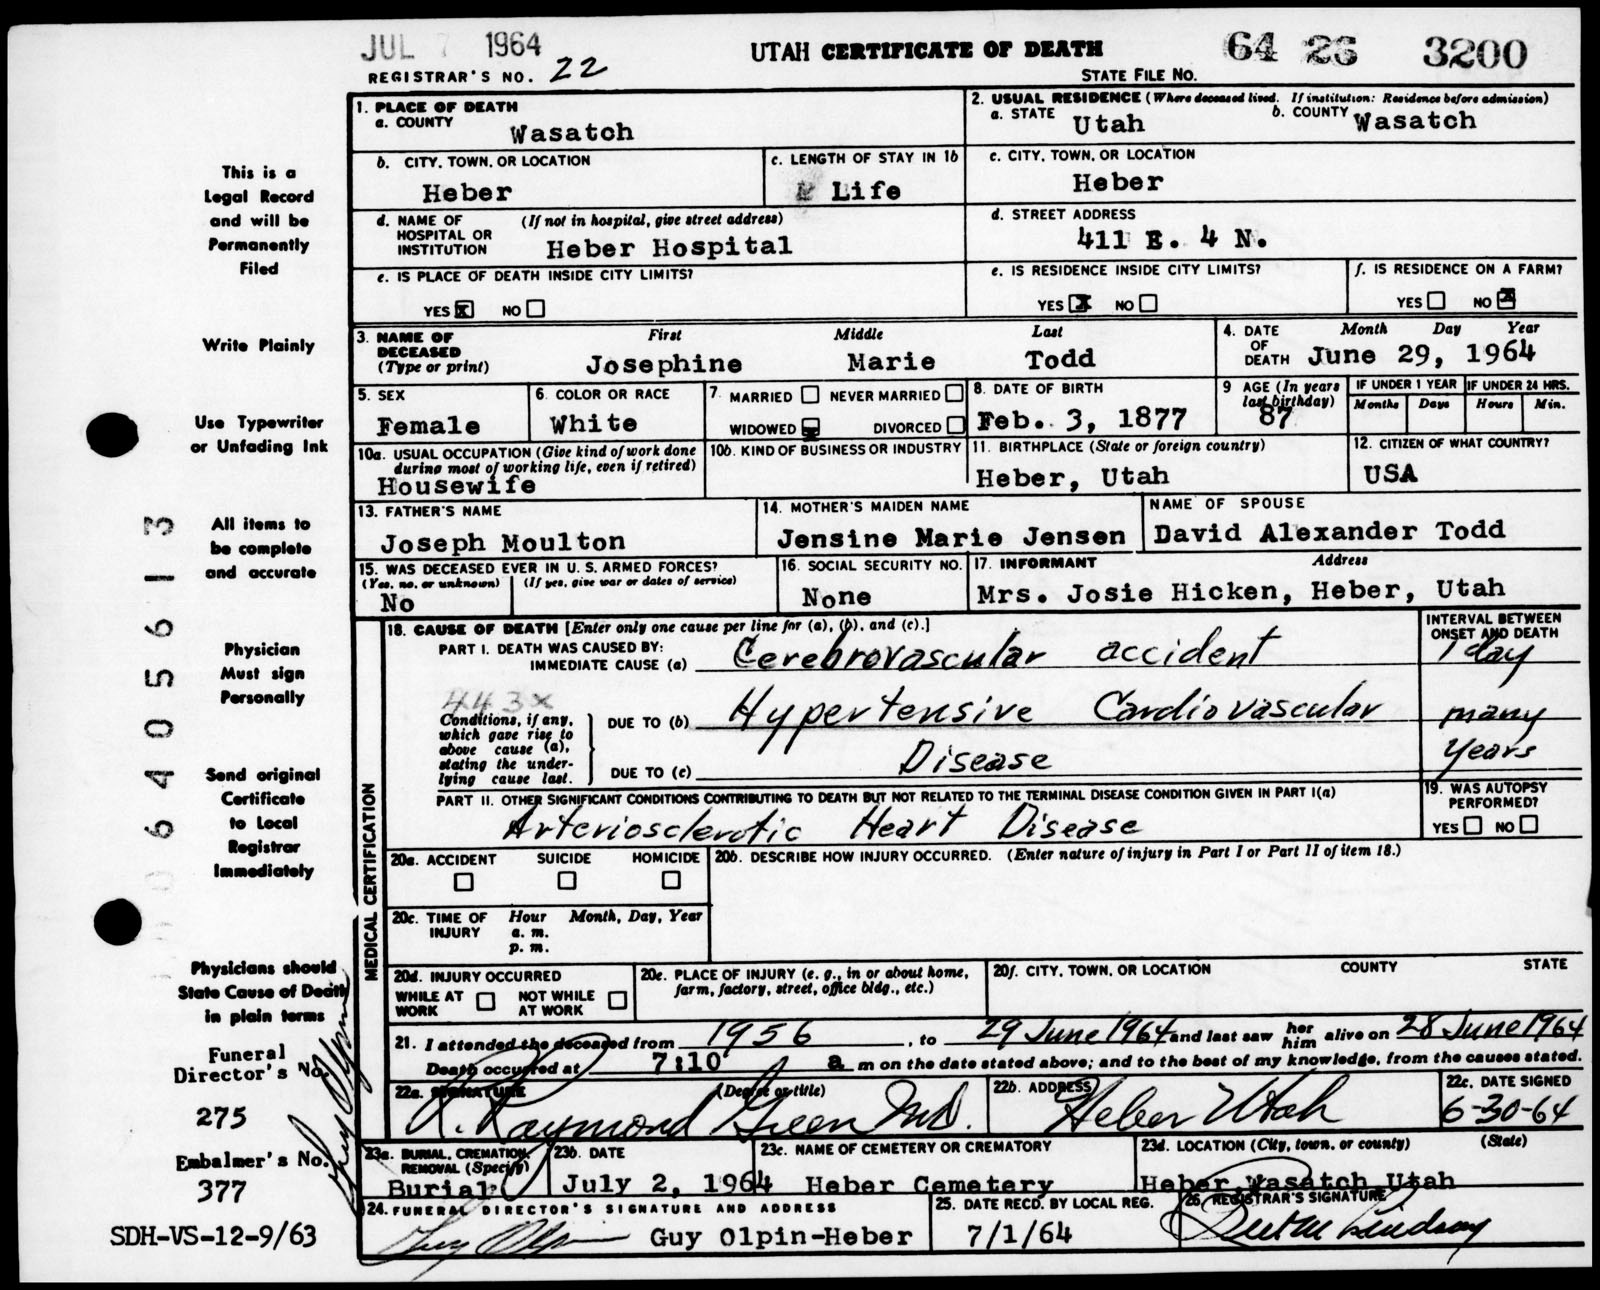 JUL 7 1964
UTAH CERTIFICATE OF DEATH
64 26 3200
REGISTRAR'S NO. 22
STATE FILE NO.
1. PLACE OF DEATH
a. COUNTY
Wasatch
2. USUAL RESIDENCE (Where deceased lived. If institution: Residence before admission)
a. STATE Utah
b. COUNTY Wasatch
b. CITY, TOWN, OR LOCATION
Heber
c. LENGTH OF STAY IN 1b
Life
c. CITY, TOWN, OR LOCATION
Heber
d. NAME OF HOSPITAL OR INSTITUTION
(If not in hospital, give street address)
Heber Hospital
d. STREET ADDRESS
411 E. 4 N.
e. IS PLACE OF DEATH INSIDE CITY LIMITS?
YES X NO
e. IS RESIDENCE INSIDE CITY LIMITS?
YES X NO
f. IS RESIDENCE ON A FARM?
YES NO X
3. NAME OF DECEASED (Type or print)
First Middle Last
Josephine Marie Todd
4. DATE OF DEATH
Month Day Year
June 29, 1964
5. SEX
Female
6. COLOR OR RACE
White
7. MARRIED NEVER MARRIED
WIDOWED X DIVORCED
8. DATE OF BIRTH
Feb. 3, 1877
9 AGE (In years last birthday)
87
IF UNDER 1 YEAR
Months Days
IF UNDER 24 HRS.
Hours Min.
10a. USUAL OCCUPATION (Give kind of work done during most of working life, even if retired)
Housewife
10b. KIND OF BUSINESS OR INDUSTRY
11. BIRTHPLACE (State or foreign country)
Heber, Utah
12. CITIZEN OF WHAT COUNTRY?
USA
13. FATHER'S NAME
Joseph Moulton
14. MOTHER'S MAIDEN NAME
Jensine Marie Jensen
NAME OF SPOUSE
David Alexander Todd
15. WAS DECEASED EVER IN U. S. ARMED FORCES?
(Yes, no, or unknown) (If yes, give war or dates of service)
No
16. SOCIAL SECURITY NO.
None
17. INFORMANT Address
Mrs. Josie Hicken, Heber, Utah
MEDICAL CERTIFICATION
18. CAUSE OF DEATH [Enter only one cause per line for (a), (b), and (c).]
INTERVAL BETWEEN ONSET AND DEATH
PART I. DEATH WAS CAUSED BY:
IMMEDIATE CAUSE (a) Cerebrovascular accident
1 day
443x
Conditions, if any, which gave rise to above cause (a), stating the underlying cause last.
DUE TO (b) Hypertensive Cardiovascular
many
years
DUE TO (c) Disease
PART II. OTHER SIGNIFICANT CONDITIONS CONTRIBUTING TO DEATH BUT NOT RELATED TO THE TERMINAL DISEASE CONDITION GIVEN IN PART I(a)
Arteriosclerotic Heart Disease
19. WAS AUTOPSY PERFORMED?
YES NO
20a. ACCIDENT SUICIDE HOMICIDE
20b. DESCRIBE HOW INJURY OCCURRED. (Enter nature of injury in Part I or Part II of item 18.)
20c. TIME OF INJURY
Hour Month, Day, Year
a. m.
p. m.
20d. INJURY OCCURRED
WHILE AT WORK NOT WHILE AT WORK
20e. PLACE OF INJURY (e. g., in or about home, farm, factory, street, office bldg., etc.)
20f. CITY, TOWN, OR LOCATION COUNTY STATE
21. I attended the deceased from 1956, to 29 June 1964 and last saw her him alive on 28 June 1964
Death occurred at 7:10 a m on the date stated above; and to the best of my knowledge, from the causes stated.
22a. SIGNATURE (Degree or title)
R. Raymond Green MD.
22b. ADDRESS
Heber Utah
22c. DATE SIGNED
6-30-64
23a. BURIAL, CREMATION, REMOVAL (Specify)
Burial
23b. DATE
July 2, 1964
23c. NAME OF CEMETERY OR CREMATORY
Heber Cemetery
23d. LOCATION (City, town, or county) (State)
Heber, Wasatch, Utah
24. FUNERAL DIRECTOR'S SIGNATURE AND ADDRESS
Guy Olpin Guy Olpin-Heber
25. DATE RECD. BY LOCAL REG.
7/1/64
26. REGISTRAR'S SIGNATURE
This is a
Legal Record
and will be
Permanently
Filed
Write Plainly
Use Typewriter
or Unfading Ink
All items to
be complete
and accurate
Physician
Must sign
Personally
Send original
Certificate
to Local
Registrar
Immediately
Physicians should
State Cause of Death
in plain terms
Funeral
Director's No.
275
Embalmer's No.
377
Guy Olpin
SDH-VS-12-9/63
006405613